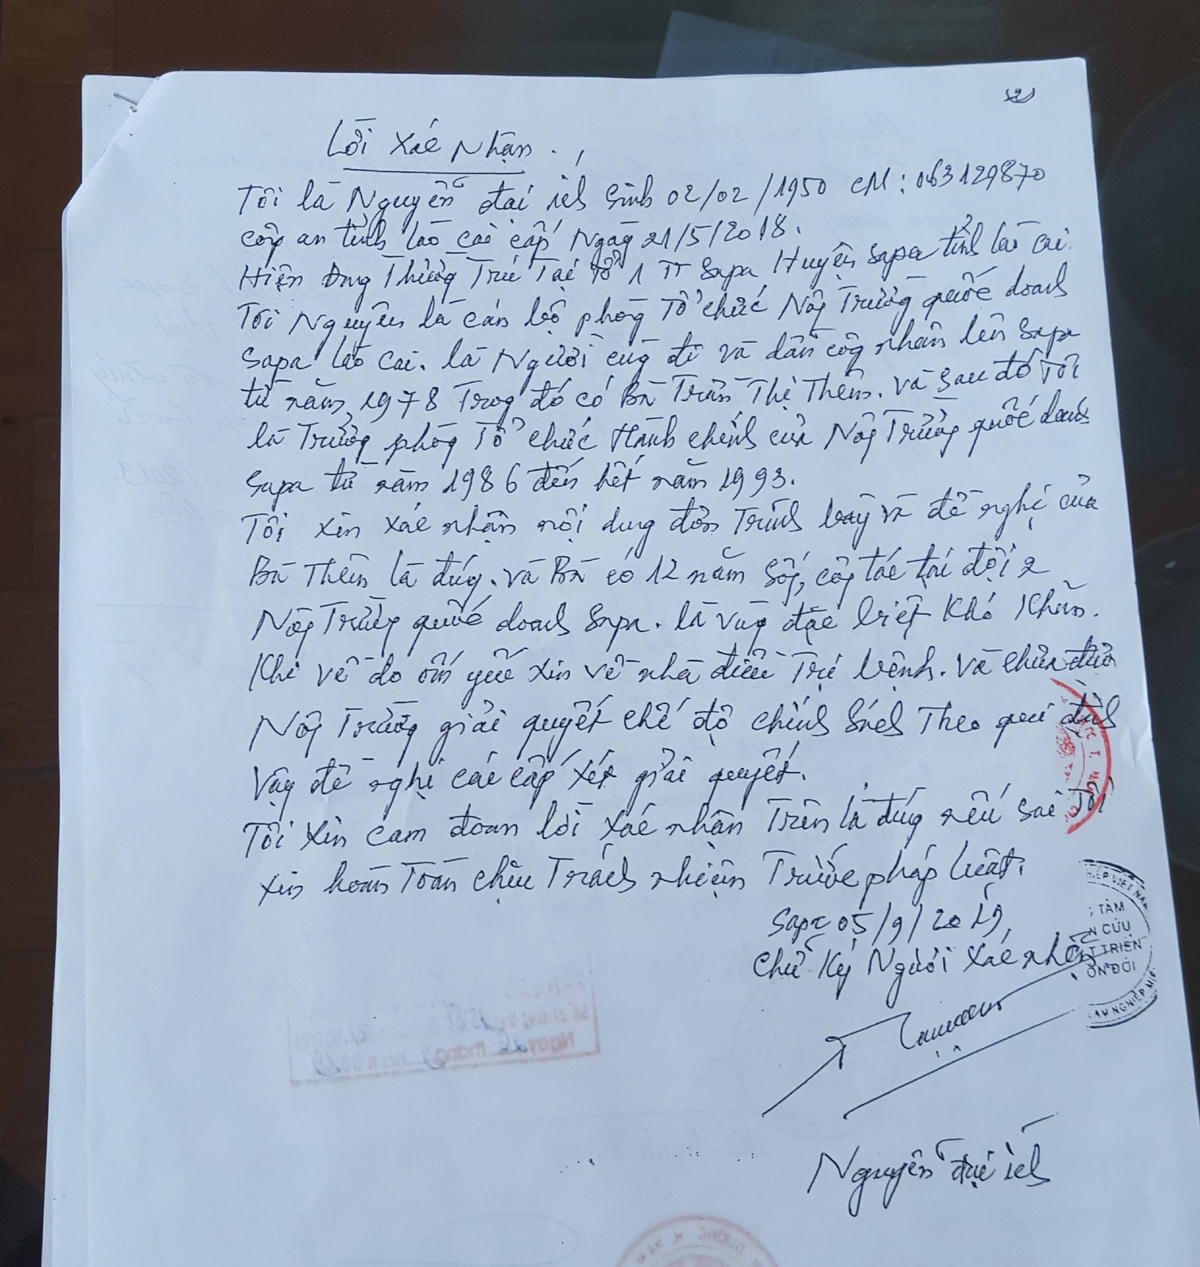 Lời Xác Nhận.
Tôi là Nguyễn đại ích Sinh 02/02/1950 CM: 063129870
công an tỉnh lào cai cấp Ngày 21/5/2018.
Hiện Đang Thường Trú Tại tổ 1 TT Sapa Huyện Sapa tỉnh lào cai.
Tôi Nguyên là cán bộ phòng Tổ chức Nông Trường quốc doanh
Sapa lào cai. là Người cùng đi và dẫn công nhân lên Sapa
từ năm 1978 Trong đó có Bà Trần Thị Thêm. và sau đó Tôi
là Trưởng phòng Tổ chức Hành chính của Nông Trường quốc doanh
Sapa từ năm 1986 đến hết năm 1993.
Tôi xin xác nhận nội dung đơn Trình bày và đề nghị của
Bà Thêm là đúng. và Bà có 12 năm sống, công tác tại đội 2
Nông Trường quốc doanh Sapa. là vùng đặc biệt Khó Khăn.
Khi về do ốm yếu xin về nhà điều Trị bệnh. và chưa được
Nông Trường giải quyết chế độ chính sách Theo qui định
Vậy đề nghị các cấp xét giải quyết.
Tôi xin cam đoan lời xác nhận Trên là đúng nếu sai Tôi
xin hoàn Toàn chịu Trách nhiệm Trước pháp luật.
Sapa 05/9/2019
Chữ Ký Người xác nhận
TÂM
CỨU
TRIỂN
Nguyễn đại ích